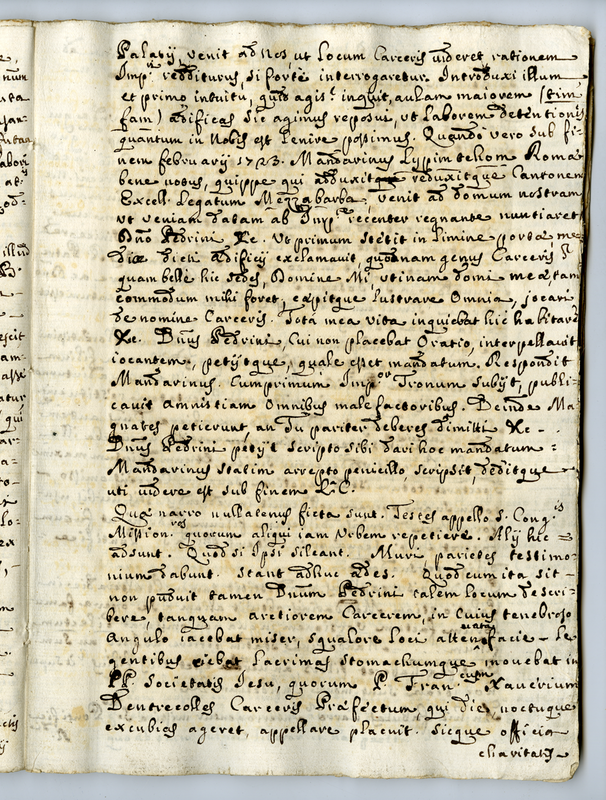 Palatij, venit ad Nos, ut locum Carceris videret rationem
Imp.ri redditurus, si forte interrogaretur. Introduxi illum
et primo intuitu, quid agis? inquit, aulam maiorem (tim
fam) ædificas Sic agimus reposui, ut laborem detentionis
quantum in Nobis est lenire possimus. Quando vero sub fi-
nem februarij 1723. Mandarinus Lypim tchom Romæ
bene notus, quippe qui adduxitque reduxitque Cantonem
Excell. Legatum Mezzabarba, venit ad domum nostram
ut veniam datam ab Imp.re recenter regnante nuntiaret
Dño Pedrini &c. Ut primum stetit in limine portæ me
diæ dicti ædificij exclamavit, quodnam genus Carceris?
quam belle hic sedes, Domine Mi, utinam domi meæ, tam
commodum mihi foret, cæpitque lustrare Omnia, jocari
de nomine Carceris. Tota mea vita inquiebat hic habitare
&c. Dnus Pedrini, Cui non placebat Oratio, interpellavit
jocantem, petijtque, quale esset mandatum. Respondit
Mandarinus. Cum primum Imp.or Tronum subijt, publi-
cavit Amnistiam Omnibus malefactoribus. Deinde Ma
gnates petierunt, an tu pariter deberes dimitti &c -
Dnus Pedrini petijt scripto sibi dari hoc mandatum =
Mandarinus statim arrepto penicillo, scripsit, deditque
uti videre est sub finem
Quæ narro nullatenus ficta sunt. Testes appello S. Cong.is
Mission.rios quorum aliqui iam Urbem repetiere. Alij hic =
adsunt. Quod si Ipsi sileant. Muri parietes testimo-
nium dabunt. Stant adhuc ædes. Quod cum ita sit -
non puduit tamen Dnum Pedrini talem locum descri-
bere, tanquam arctiorem Carcerem, in Cuius tenebroso
Angulo iacebat miser, squalore loci facie - Le
gentibus ciebat lacrimas stomachumque movebat in
PP. Societatis Jesu, quorum P. Fran.cum Xaverium
Dentrecolles Carceris Præfectum, qui die, noctuque
excubias ageret, appellare placuit. Sicque officia
charitatis